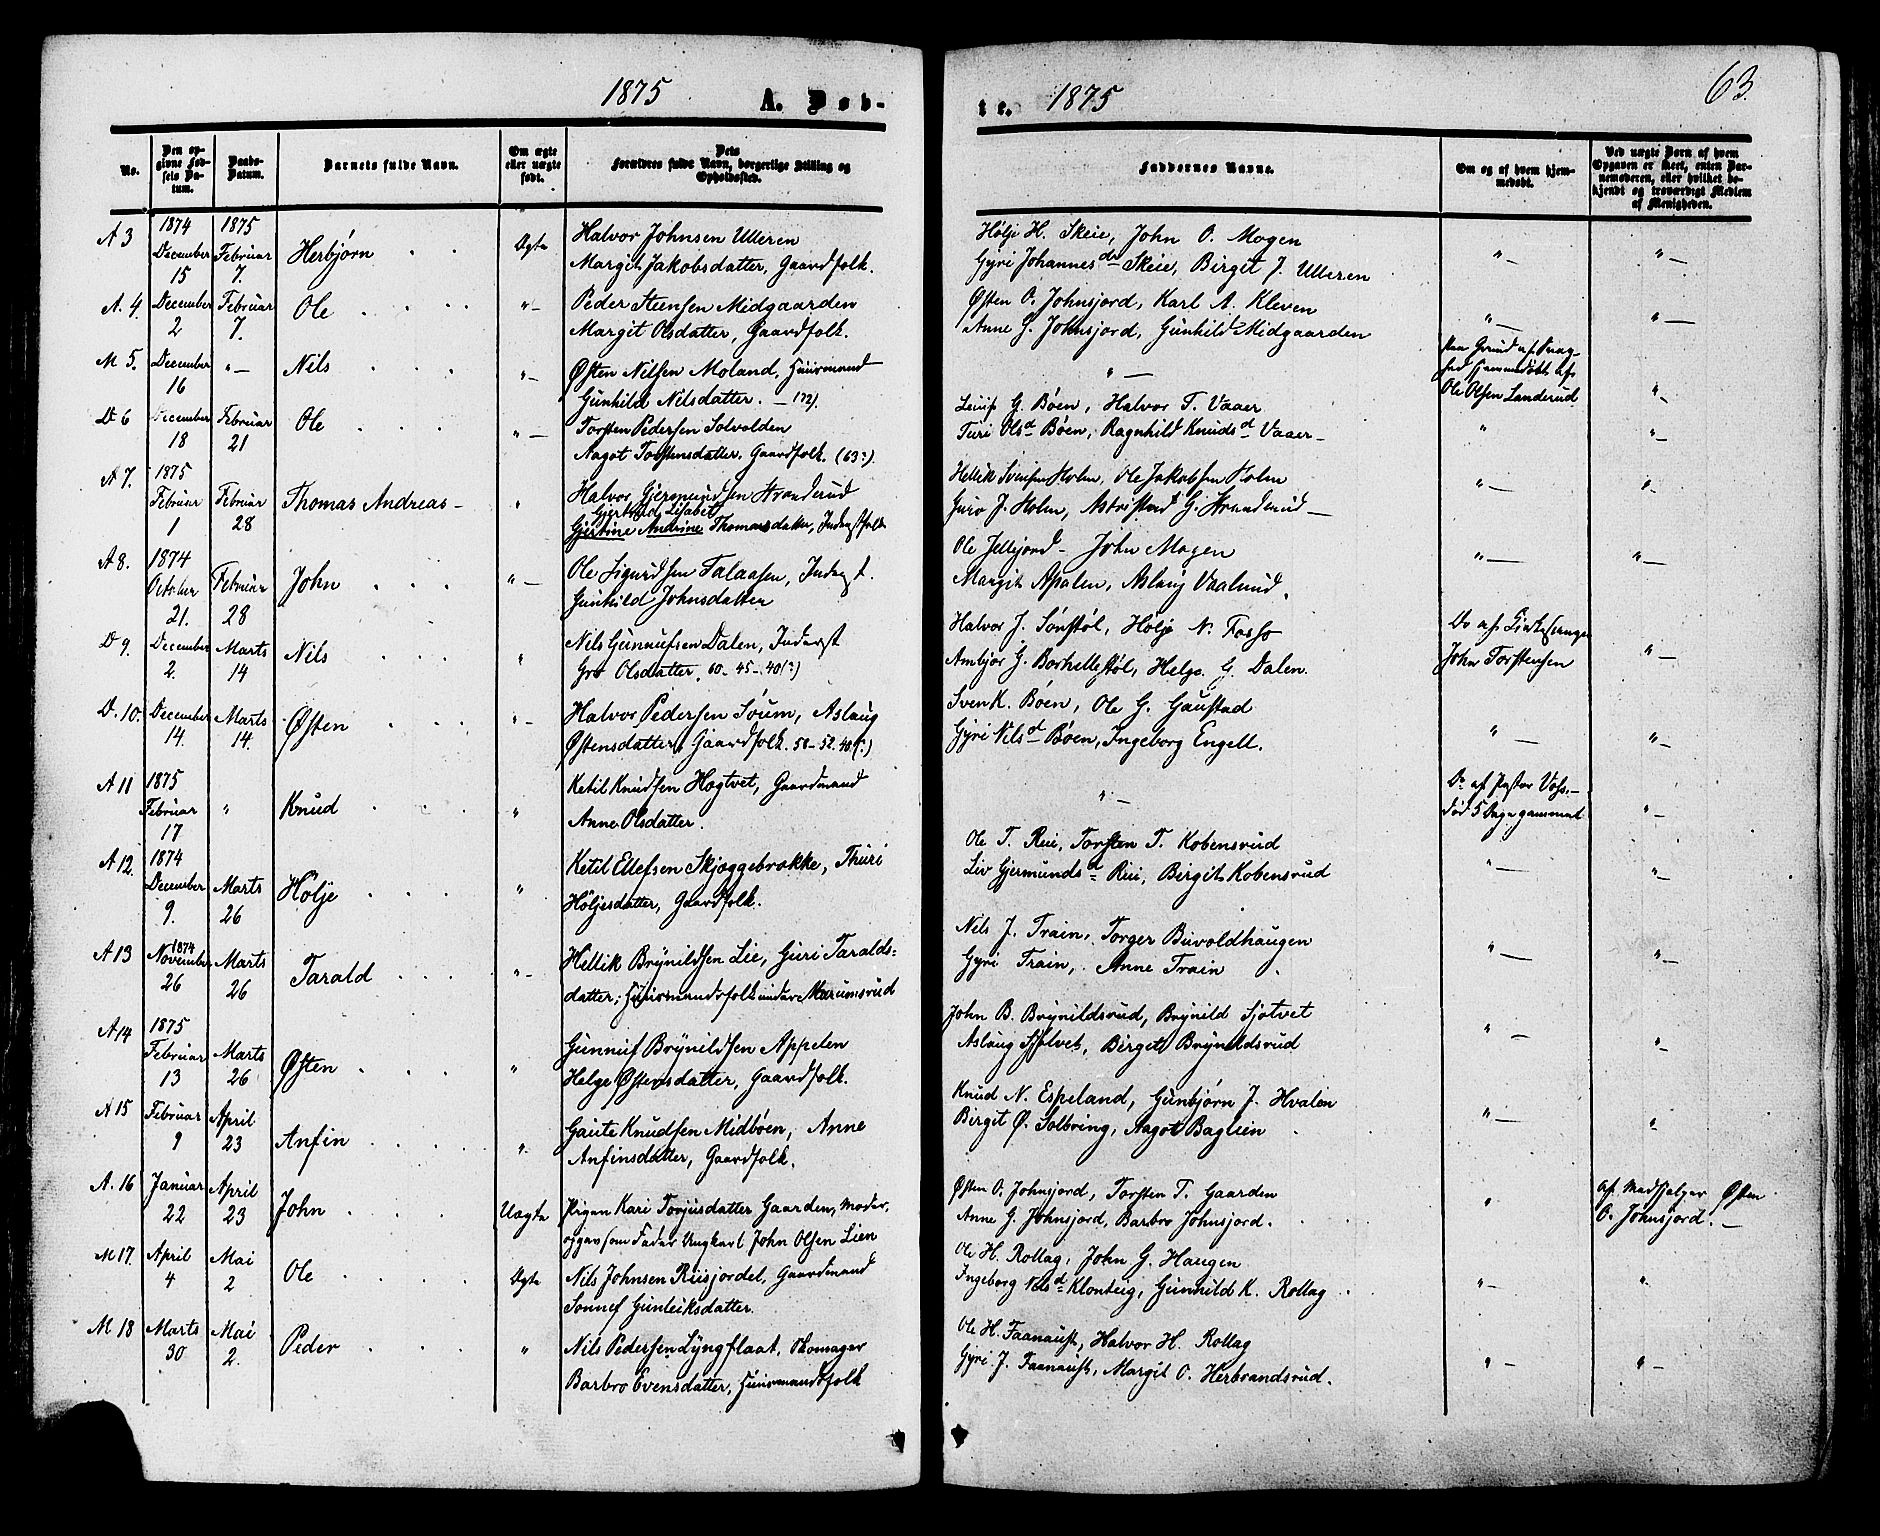 1875 A. Døb-
te. 1875 63.
No. | Den opgivne Fødsels Datum. | Daabs-Datum. | Barnets fulde Navn. | Om ægte eller uægte født. | Dets Forældres fulde Navn, borgerlige Stilling og Opholdssted. | Faddernes Navne. | Om og af hvem hjemmedøbt. | Ved uægte Børn af hvem Opgaven er skeet, enten Barnemoderen, eller hvilket bekjendt og troværdigt Medlem af Menigheden.
A 3 1874 December 15 1875 Februar 7. Herbjørn Ægte Halvor Johnsen Ulleren
Margit Jakobsdatter, Gaardfolk.
Hølje H. Skeie, John O. Mogen
Gyri Johannesd. Skeie, Birgit J. Ulleren
A. 4. December 2 Februar 7. Ole "— Peder Steensen Midgaarden
Margit Olsdatter, Gaardfolk.
Østen O. Johnsjord, Karl A. Kleven
Anne G. Johnsjord, Gunhild Midgaarden
M 5. December 16 "— Nils "— Østen Nilsen Moland, Huusmand
Gunhild Nilsdatter. —
"—
Paa Grund af Svaghed hjemmedøbt af
Ole Olsen Landerud
D 6 December 18 Februar 21 Ole "— Torsten Pedersen Solvolden
Aagot Torstensdatter, Gaardfolk. (63:).
G. Bøen, Halvor T. Vaaer
Turi Olsd. Bøen, Ragnhild Knudsd. Vaaer
A 7. 1875 Februar 1 Februar 28 Thomas Andreas " Halvor Gjermundsen Stranderud
Gjertrud Lisabet
Gjertine Andrine Thomasdatter, Inderstfolk
Hellik Svensen Holm, Ole Jakobsen Holm
Guro J. Holm, G. Stranderud
A 8. 1874 October 21. Februar 28 John "— Ole Sigurdsen Talaasen, Inderst.
Gunhild Johnsdatter
Ole Jellejord — John Mogen
Margit Apalen, Aslaug Vaalund.
D 9. December 2. Marts 14 Nils " Nils Gunnufsen Dalen, Inderst
Gro Olsdatter. 60-45-40(:)
Halvor J. Sønstøl, Hølje N. Fosso
Ambjør G. Borhellestøl, Helge G. Dalen.
Do af
John Torstensen
D. 10. December 14. Marts 14. Østen "— Halvor Pedersen Søum, Aslaug
Østensdatter, Gaardfolk. 58-52.40(:)
Sven K. Bøen, Ole G. Gaustad
Gyri Nilsd. Bøen, Ingeborg Engell.
A 11 1875 Februar 17 " Knud " Ketil Knudsen Hogtvet, Gaardmand
Anne Olsdatter.
"—
Do af Pastor Voss.—
død 5 Dage gammel
A 12. 1874 December 9. Marts 26 Hølje " Ketil Ellefsen Skjæggebrokke, Thuri
Høljesdatter, Gaardfolk.
Ole T. Rui, Torsten T. Kobensrud
Liv Gjermundsd. Rui, Birgit Kobensrud
A 13 1874 November 26 Marts 26 Tarald "— Hellik Brynildsen Lie, Guri Taralds-
datter; Huusmandsfolk under Marumsrud
Nils J. Train, Torger Buvoldhaugen
Gyri Train, Anne Train
A 14 1875 Februar 13 Marts 26 Østen " Gunnuf Brynildsen Appelen
Helge Østensdatter, Gaardfolk.
John B. Brynildsrud, Brynild Sjotvet
Aslaug Sjotvet, Birgit Brynildsrud
A 15 Februar 9 April 23 Anfin " Gaute Knudsen Midbøen, Anne
Anfinsdatter, Gaardfolk.
Knud N. Espeland, Gunbjørn J. Hvalen
Birgit Ø. Solbring, Aagot Baglien
A. 16 Januar 22 April 23 John Uægte Pigen Kari Torjusdatter Gaarden, Moder,
opgav som Fader Ungkarl John Olsen Lien
Østen O. Johnsjord, Torsten T. Gaarden
Anne G. Johnsjord, Barbro Johnsjord.
af Medhjælper Østen
O. Johnsjord.—
M 17. April 4 Mai 2 Ole Ægte Nils Johnsen Ruisjordet, Gaardmand
Sonnef Gunleiksdatter.
Ole H. Rollag, John G. Haugen
Ingeborg Nilsd. Klonteig, Gunhild K. Rollag
M 18 Marts 30 Mai 2. Peder " Nils Pedersen Lyngflaat, Skomager
Barbro Evensdatter, Huusmandsfolk
Ole H. Faanaust, Halvor H. Rollag
Gyri J. Faanaust, Margit O. Herbrandsrud.